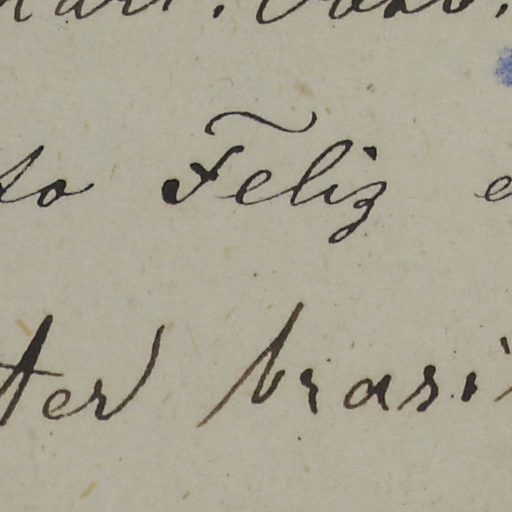 to Feliz e
ter brasi